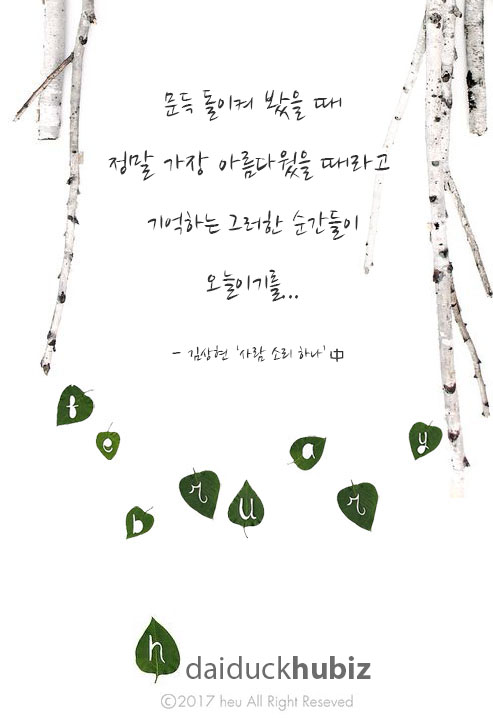 문득 돌이켜 봤을 때
정말 가장 아름다웠을 때라고
기억하는 그러한 순간들이
오늘이기를...
- 김상현 '사람 소리 하나' 中
february
h daiduckhubiz
©2017 heu All Right Reseved